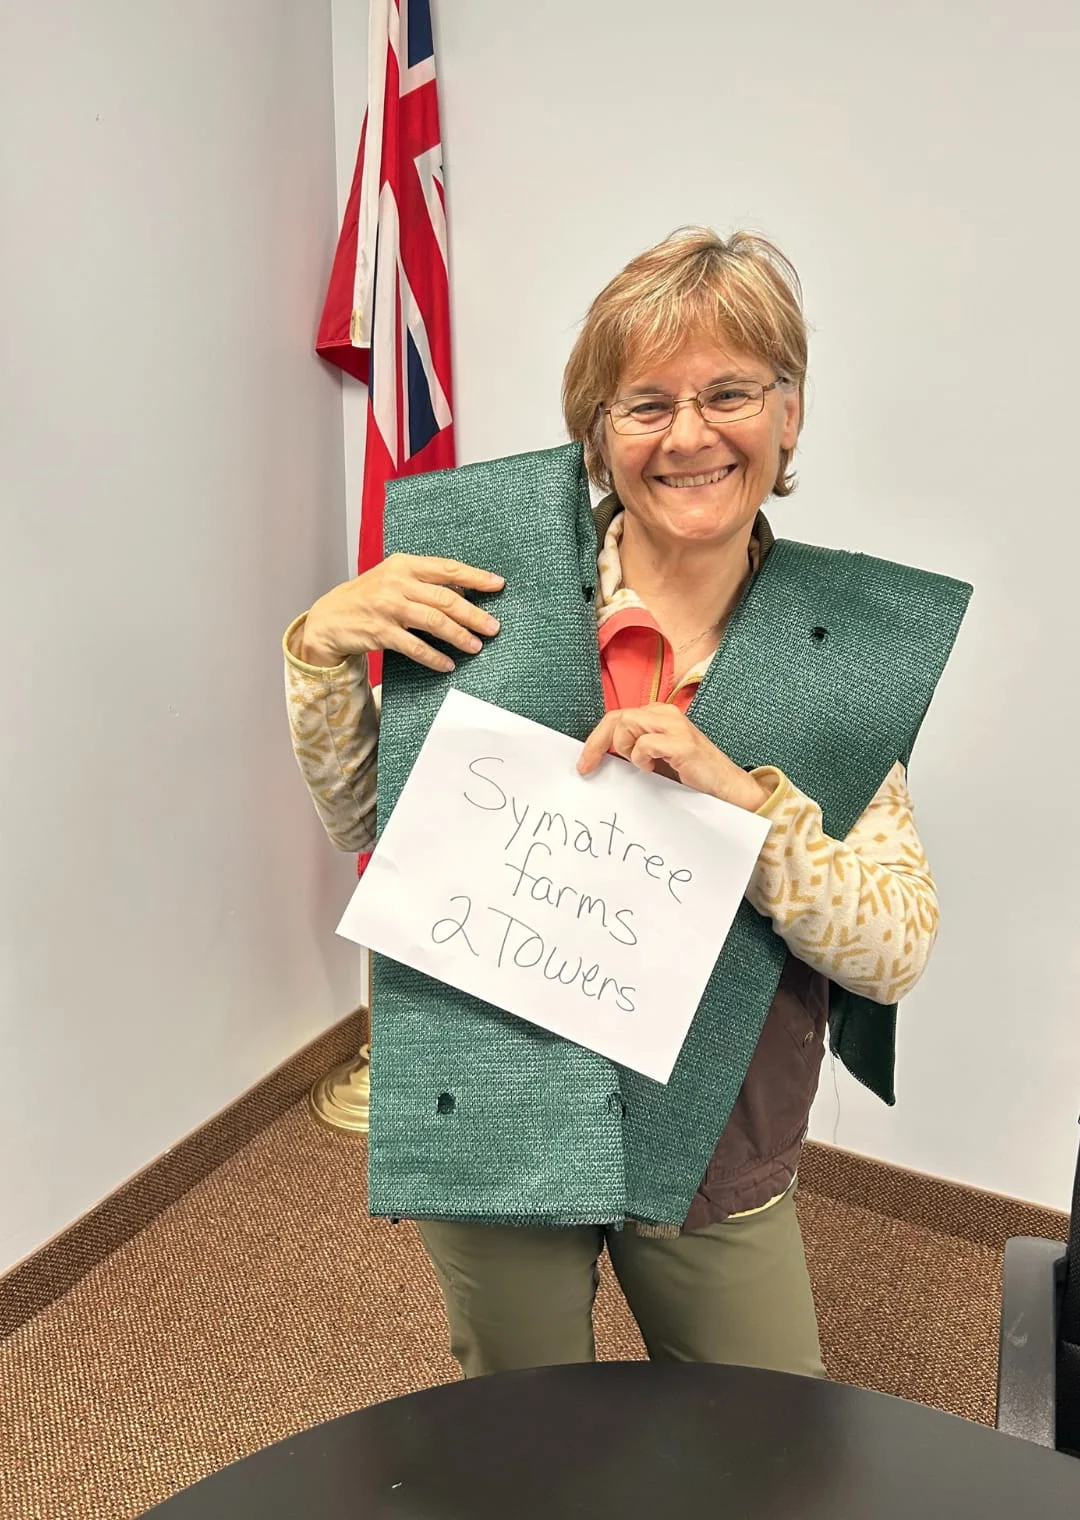 Symatree
farms
2 Towers